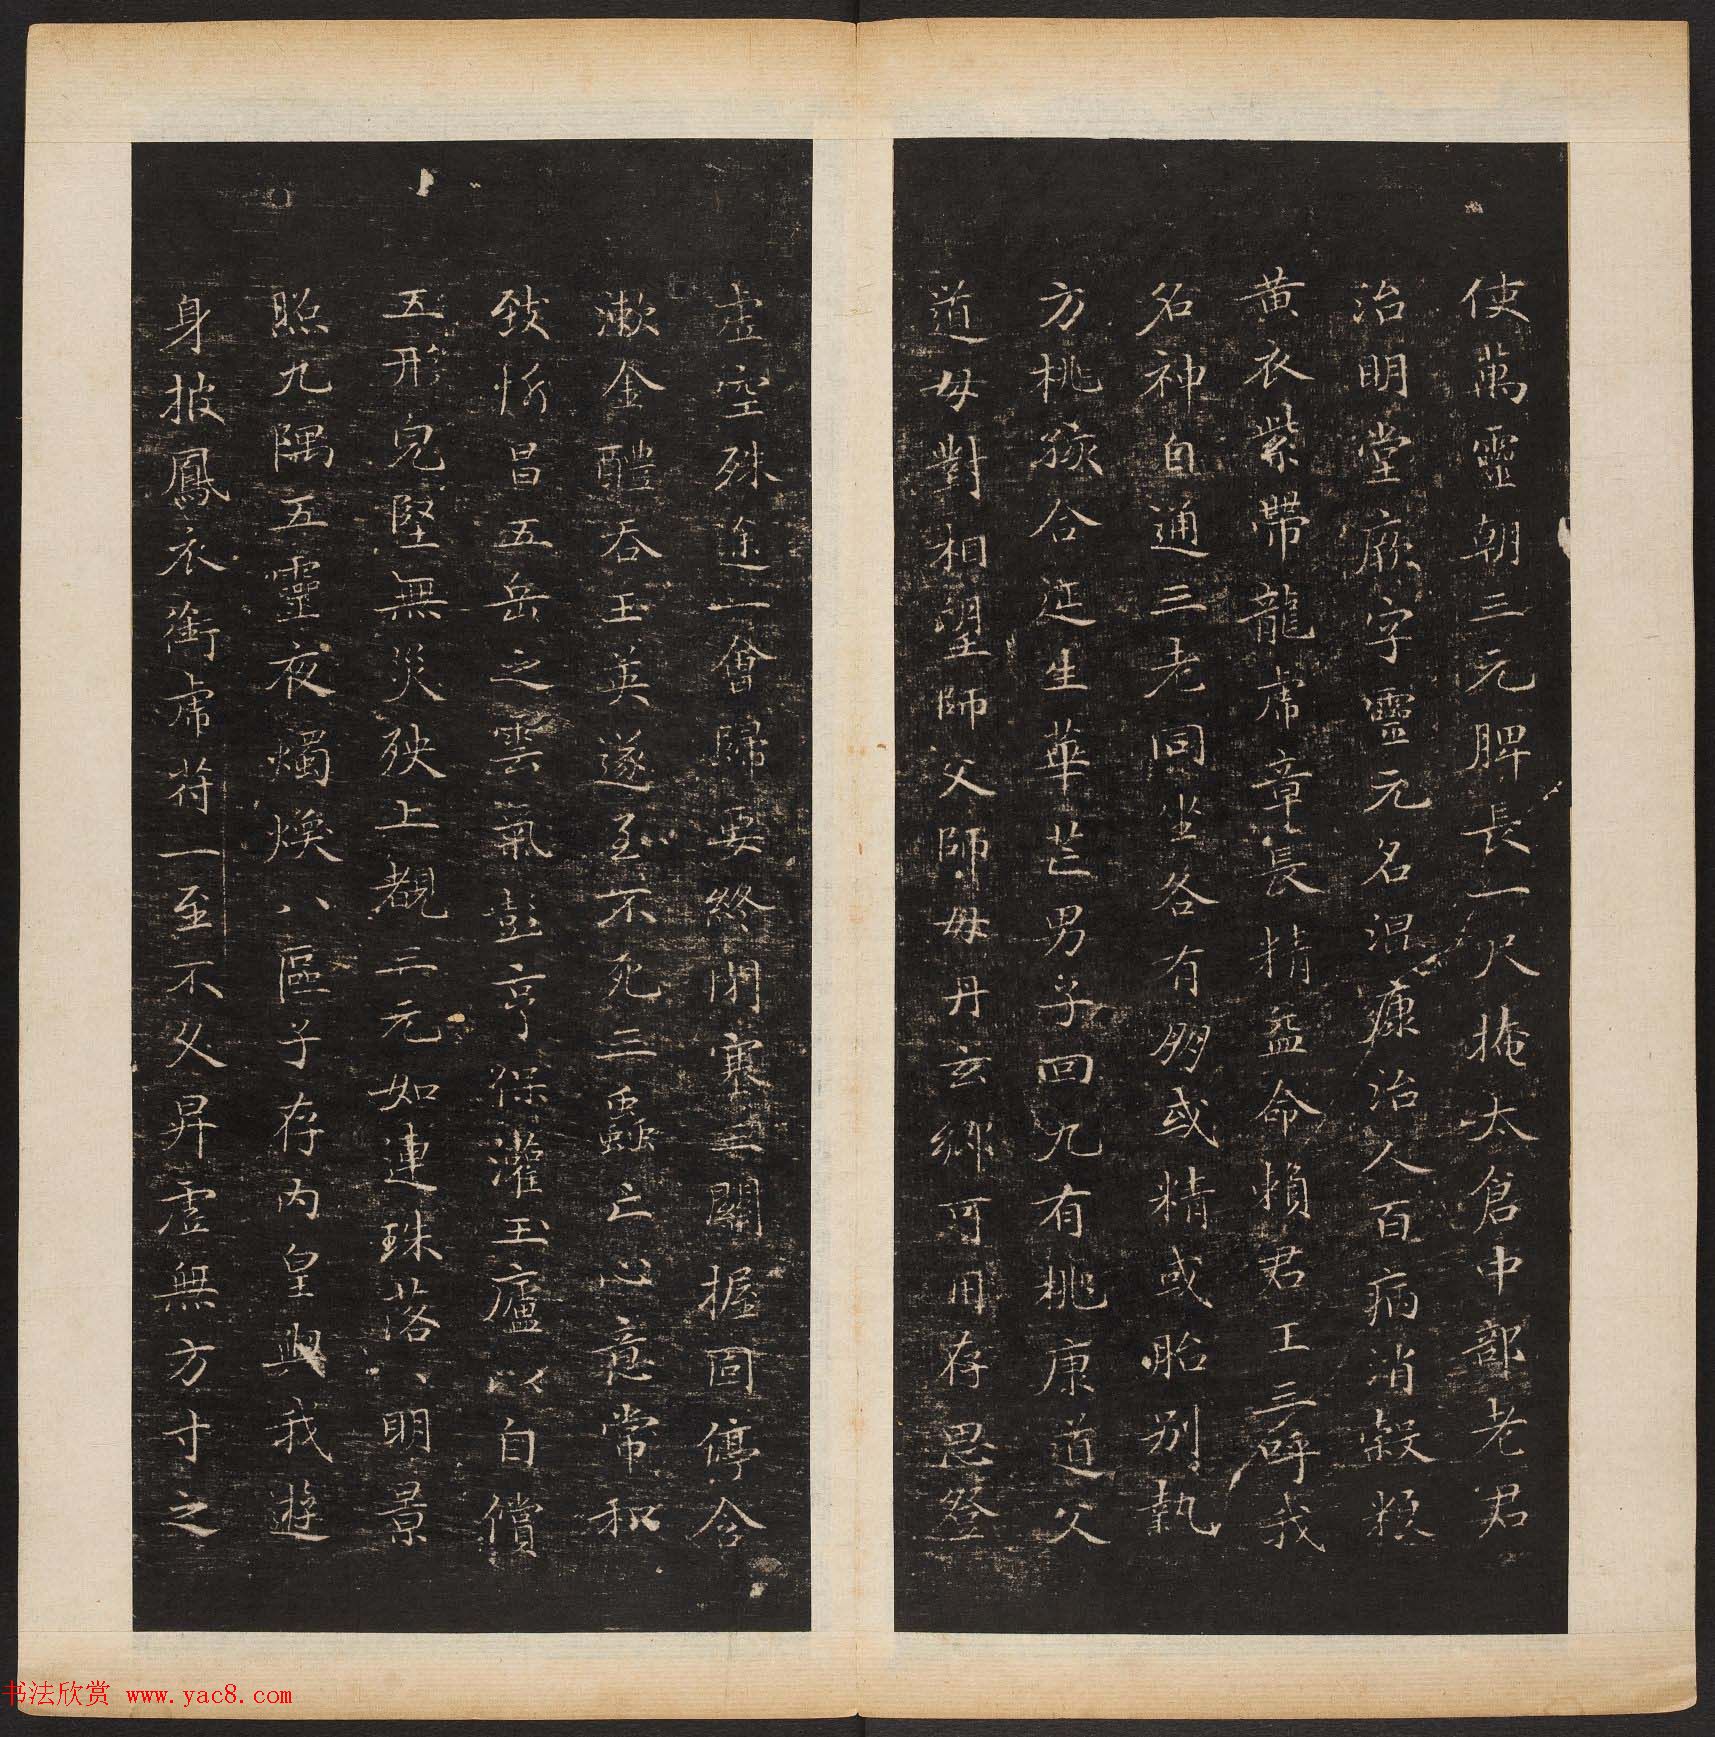 使萬靈朝三元脾長一尺掩太倉中部老君
治明堂厥字靈元名混康治人百病消穀糧
黃衣紫帶龍虎章長精益命賴君王三呼我
名神自通三老同坐各有朋或精或胎别執
方桃孩合延生華芒男女回九有桃康道父
道母對相望師父師母丹玄鄉可用存思登
虛空殊途一會歸要終閉塞三關握固停含
漱金醴吞玉英遂至不死三蟲亡心意常和
致忻昌五岳之雲氣彭亨保灌玉廬以自償
五形完堅無災殃上覩三元如連珠落落明景
照九隅五靈夜燭煥八區子存內皇與我遊
身披鳳衣銜虎符一至不久昇虛無方寸之
书法欣赏 www.yac8.com